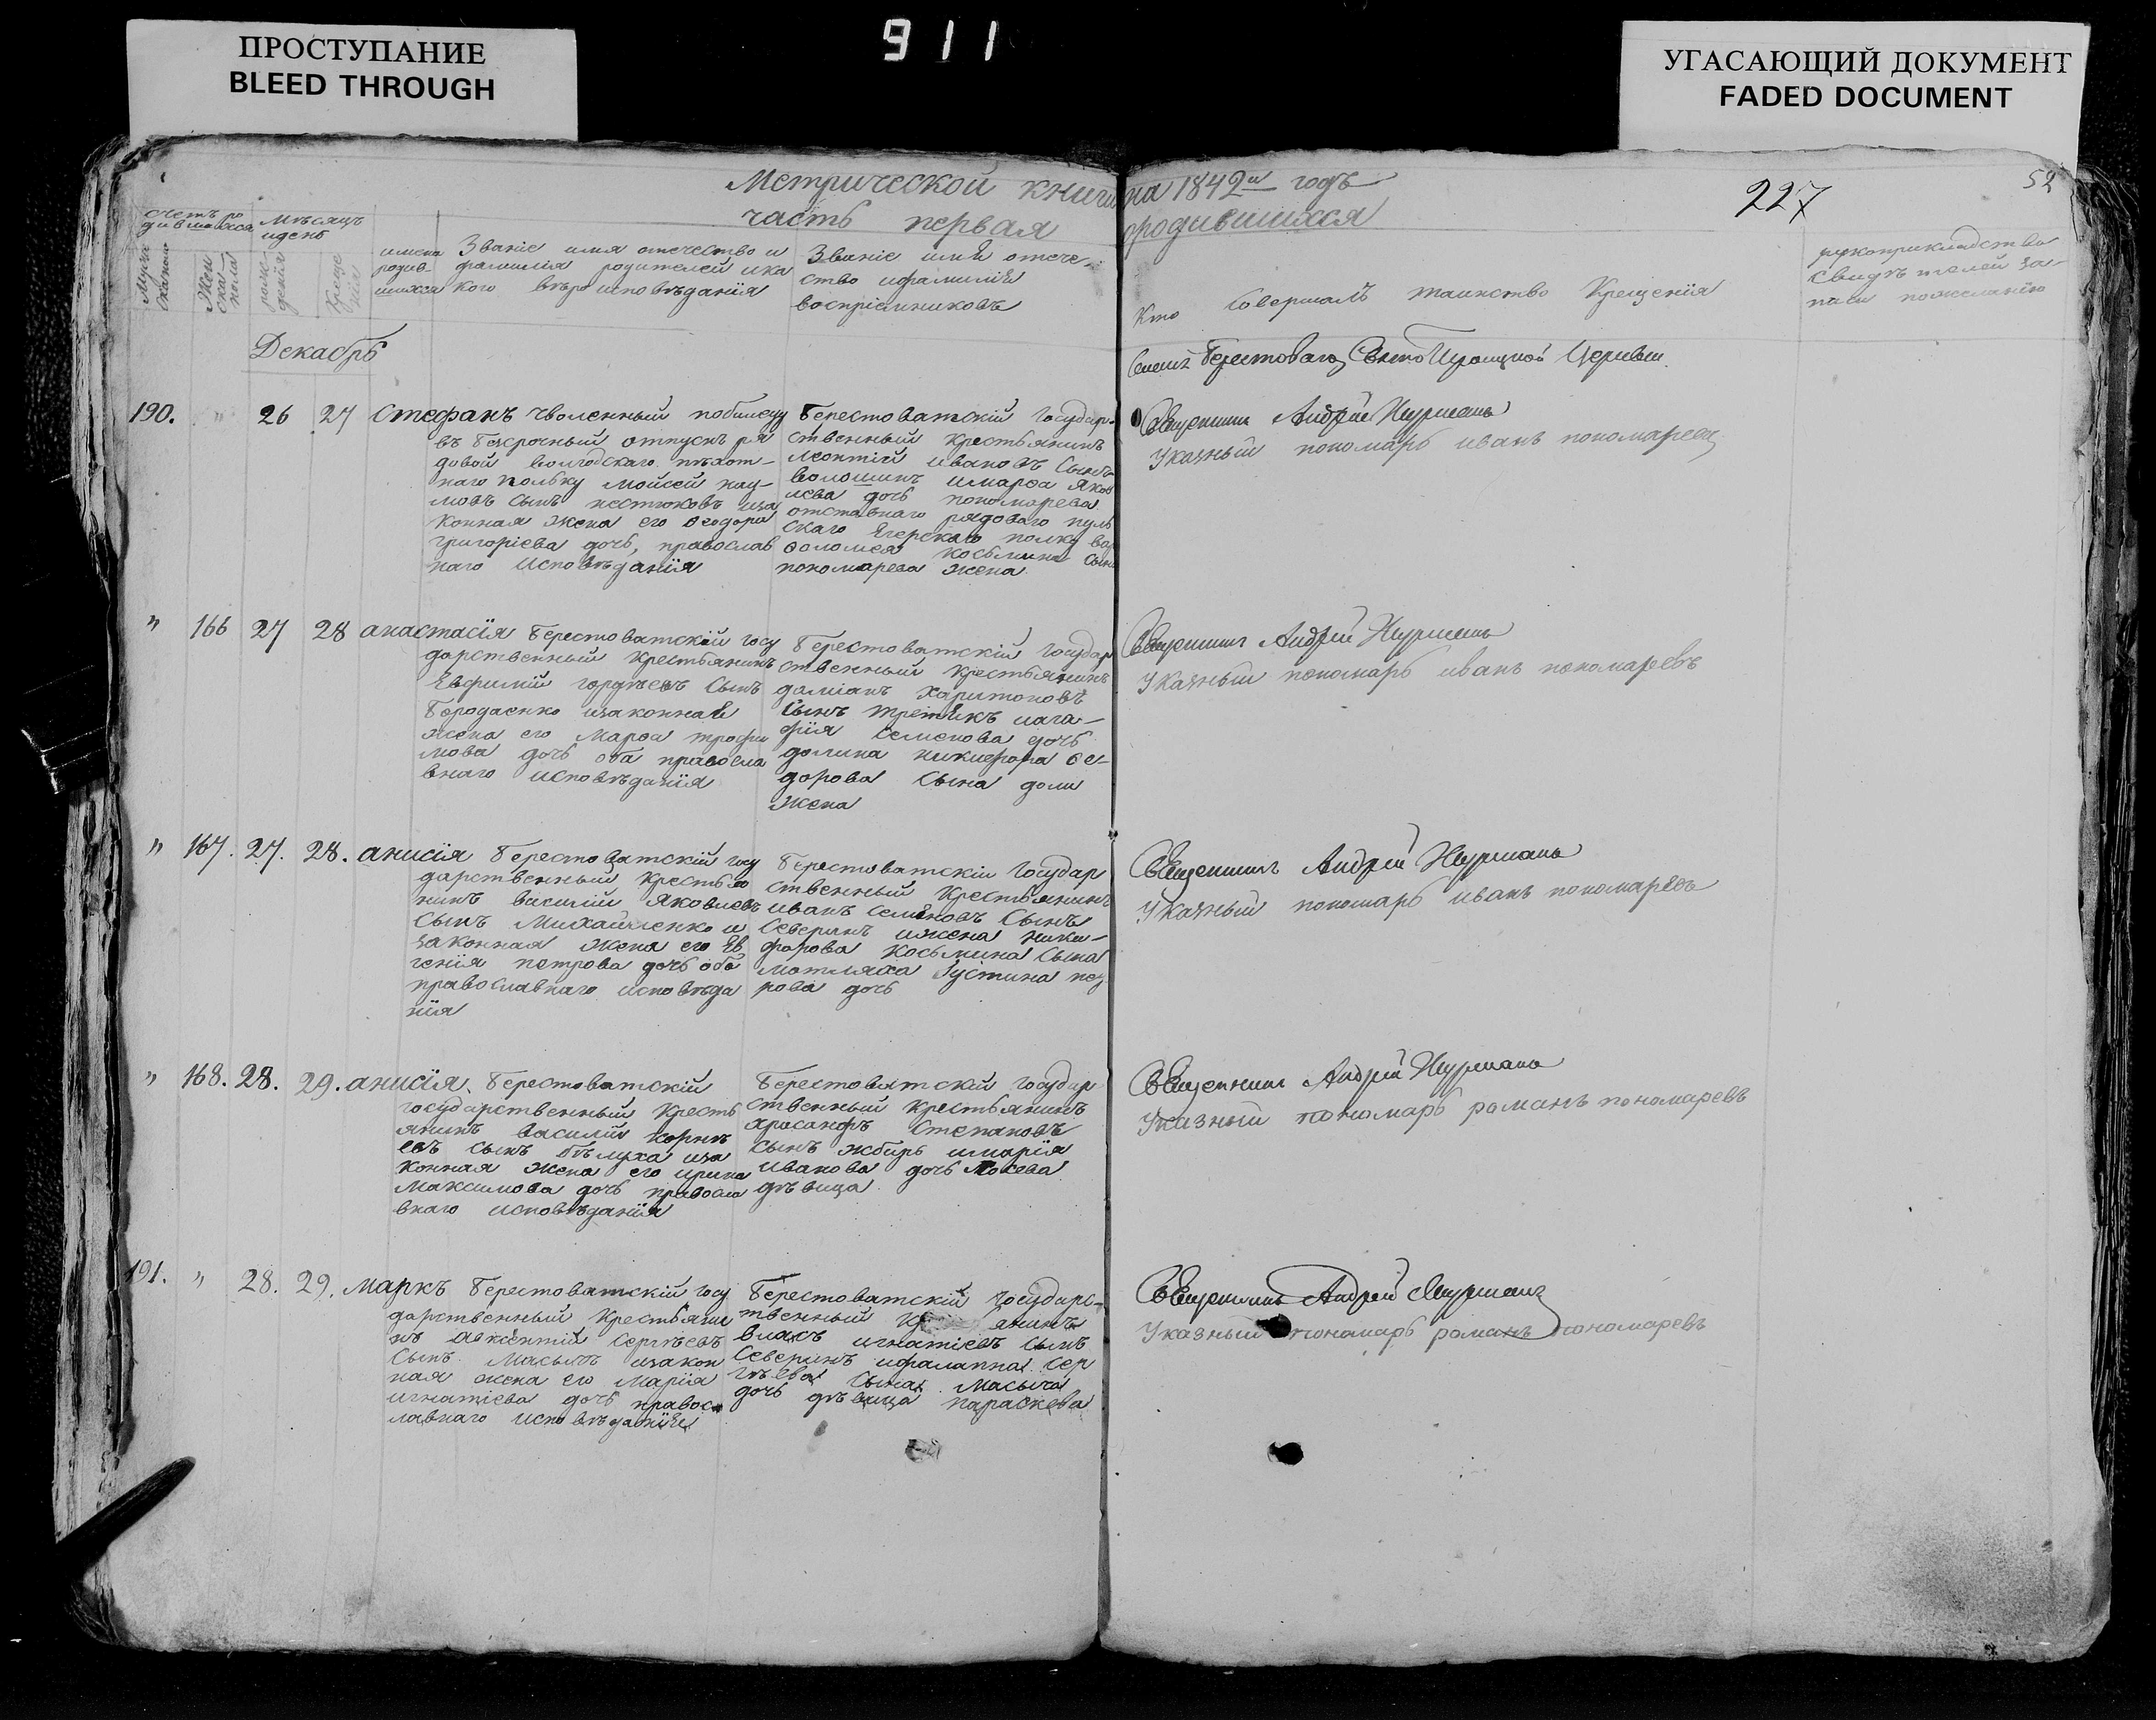 ПРОСТУПАНИЕ
BLEED THROUGH
911
УГАСАЮЩИЙ ДОКУМЕНТ
FADED DOCUMENT
Метрической книги на 1842й годъ
часть первая ородившихся
227
52
счетъ ро
дившихся
Мужа
скаго
Жен
ска
пола
Мѣсяцъ
идень
рож-
денія
Креще
нія
имена
родив-
шихся
Званіе имя отечество и
фамилія родителей ика
кого вѣроисповѣданія
Званіе имя отече-
ство ифамилія
воспріемниковъ
Кто Совершалъ таинство Крещенія
рукоприкладство
свидѣтелей за-
писи пожеланію
Декабрь
Берестоваго Церквы
190. " 26 27 Стефанъ уволенный побилету
въ безсрочный отпускъ ря
довой вологодскаго пѣхот-
наго полку Мойсей нау-
мовъ сынъ нестюковъ иза
конная жена его Ѳеодора
григоріева дочь, православ
наго Исповѣданія
Берестоватскій государ-
ственный крестьянинъ
леонтій ивановъ Сынъ
волошинъ имарѳа яков
лева дочь пономарева
отставнаго рядоваго
скаго Егерскаго полку вар
ѳоломея косьмина сына
пономарева жена
Священникъ Андрей
Указный пономарь иванъ пономаревъ
" 166 27 28 анастасія Берестоватскій госу
дарственный крестьянинъ
Евфимій гордѣевъ Сынъ
Бородаенко изаконная
жена его Марѳа трофи
мова дочь оба правосла
внаго исповѣданія
Берестоватскій государ
ственный крестьянинъ
даміанъ харитоновъ
Сынъ третякъ иага-
фія Семенова дочь
долина никифора Ѳе-
дорова Сына доли
жена
Священникъ Андрей
Указный пономарь иванъ пономаревъ
" 167. 27. 28. анисія Берестоватскій госу
дарственный крестья
нинъ василій Яковлевъ
Сынъ Михайленко и
законная жена его Ев
генія петрова дочь оба
православнаго исповѣда
нія
Берестоватскій государ
ственный крестьянинъ
иванъ Семеновъ Сынъ
Северинъ ижена ники-
форова косьмина сына
Іустина
рова дочь
Священникъ Андрей
Указный пономарь иванъ пономаревъ
" 168. 28. 29. анисія. Берестоватскій
государственный кресть
янинъ василій корнѣ
евъ сынъ бѣлуха иза
конная жена его ирина
Максимова дочь правосла
внаго исповѣданія
Берестоватскій государ
ственный крестьянинъ
хрисанфъ Степановъ
сынъ жбырь имарія
иванова дочь Мокева
дѣвица.
Священникъ Андрей
Указный пономарь романъ пономаревъ
191. " 28. 29. маркъ Берестоватскій госу
дарственный крестьяни
нъ авксентій Сергѣевъ
Сынъ Масычъ изакон
ная жена его Марія
игнатіева дочь правос
лавнаго исповѣданія
Берестоватскій государс-
твенный янинъ
власъ игнатіевъ сынъ
Северинъ ифилиппа Сер
гѣева Сына Масыча
дочь дѣвица параскева
Священникъ Андрей
Указный пономарь романъ пономаревъ